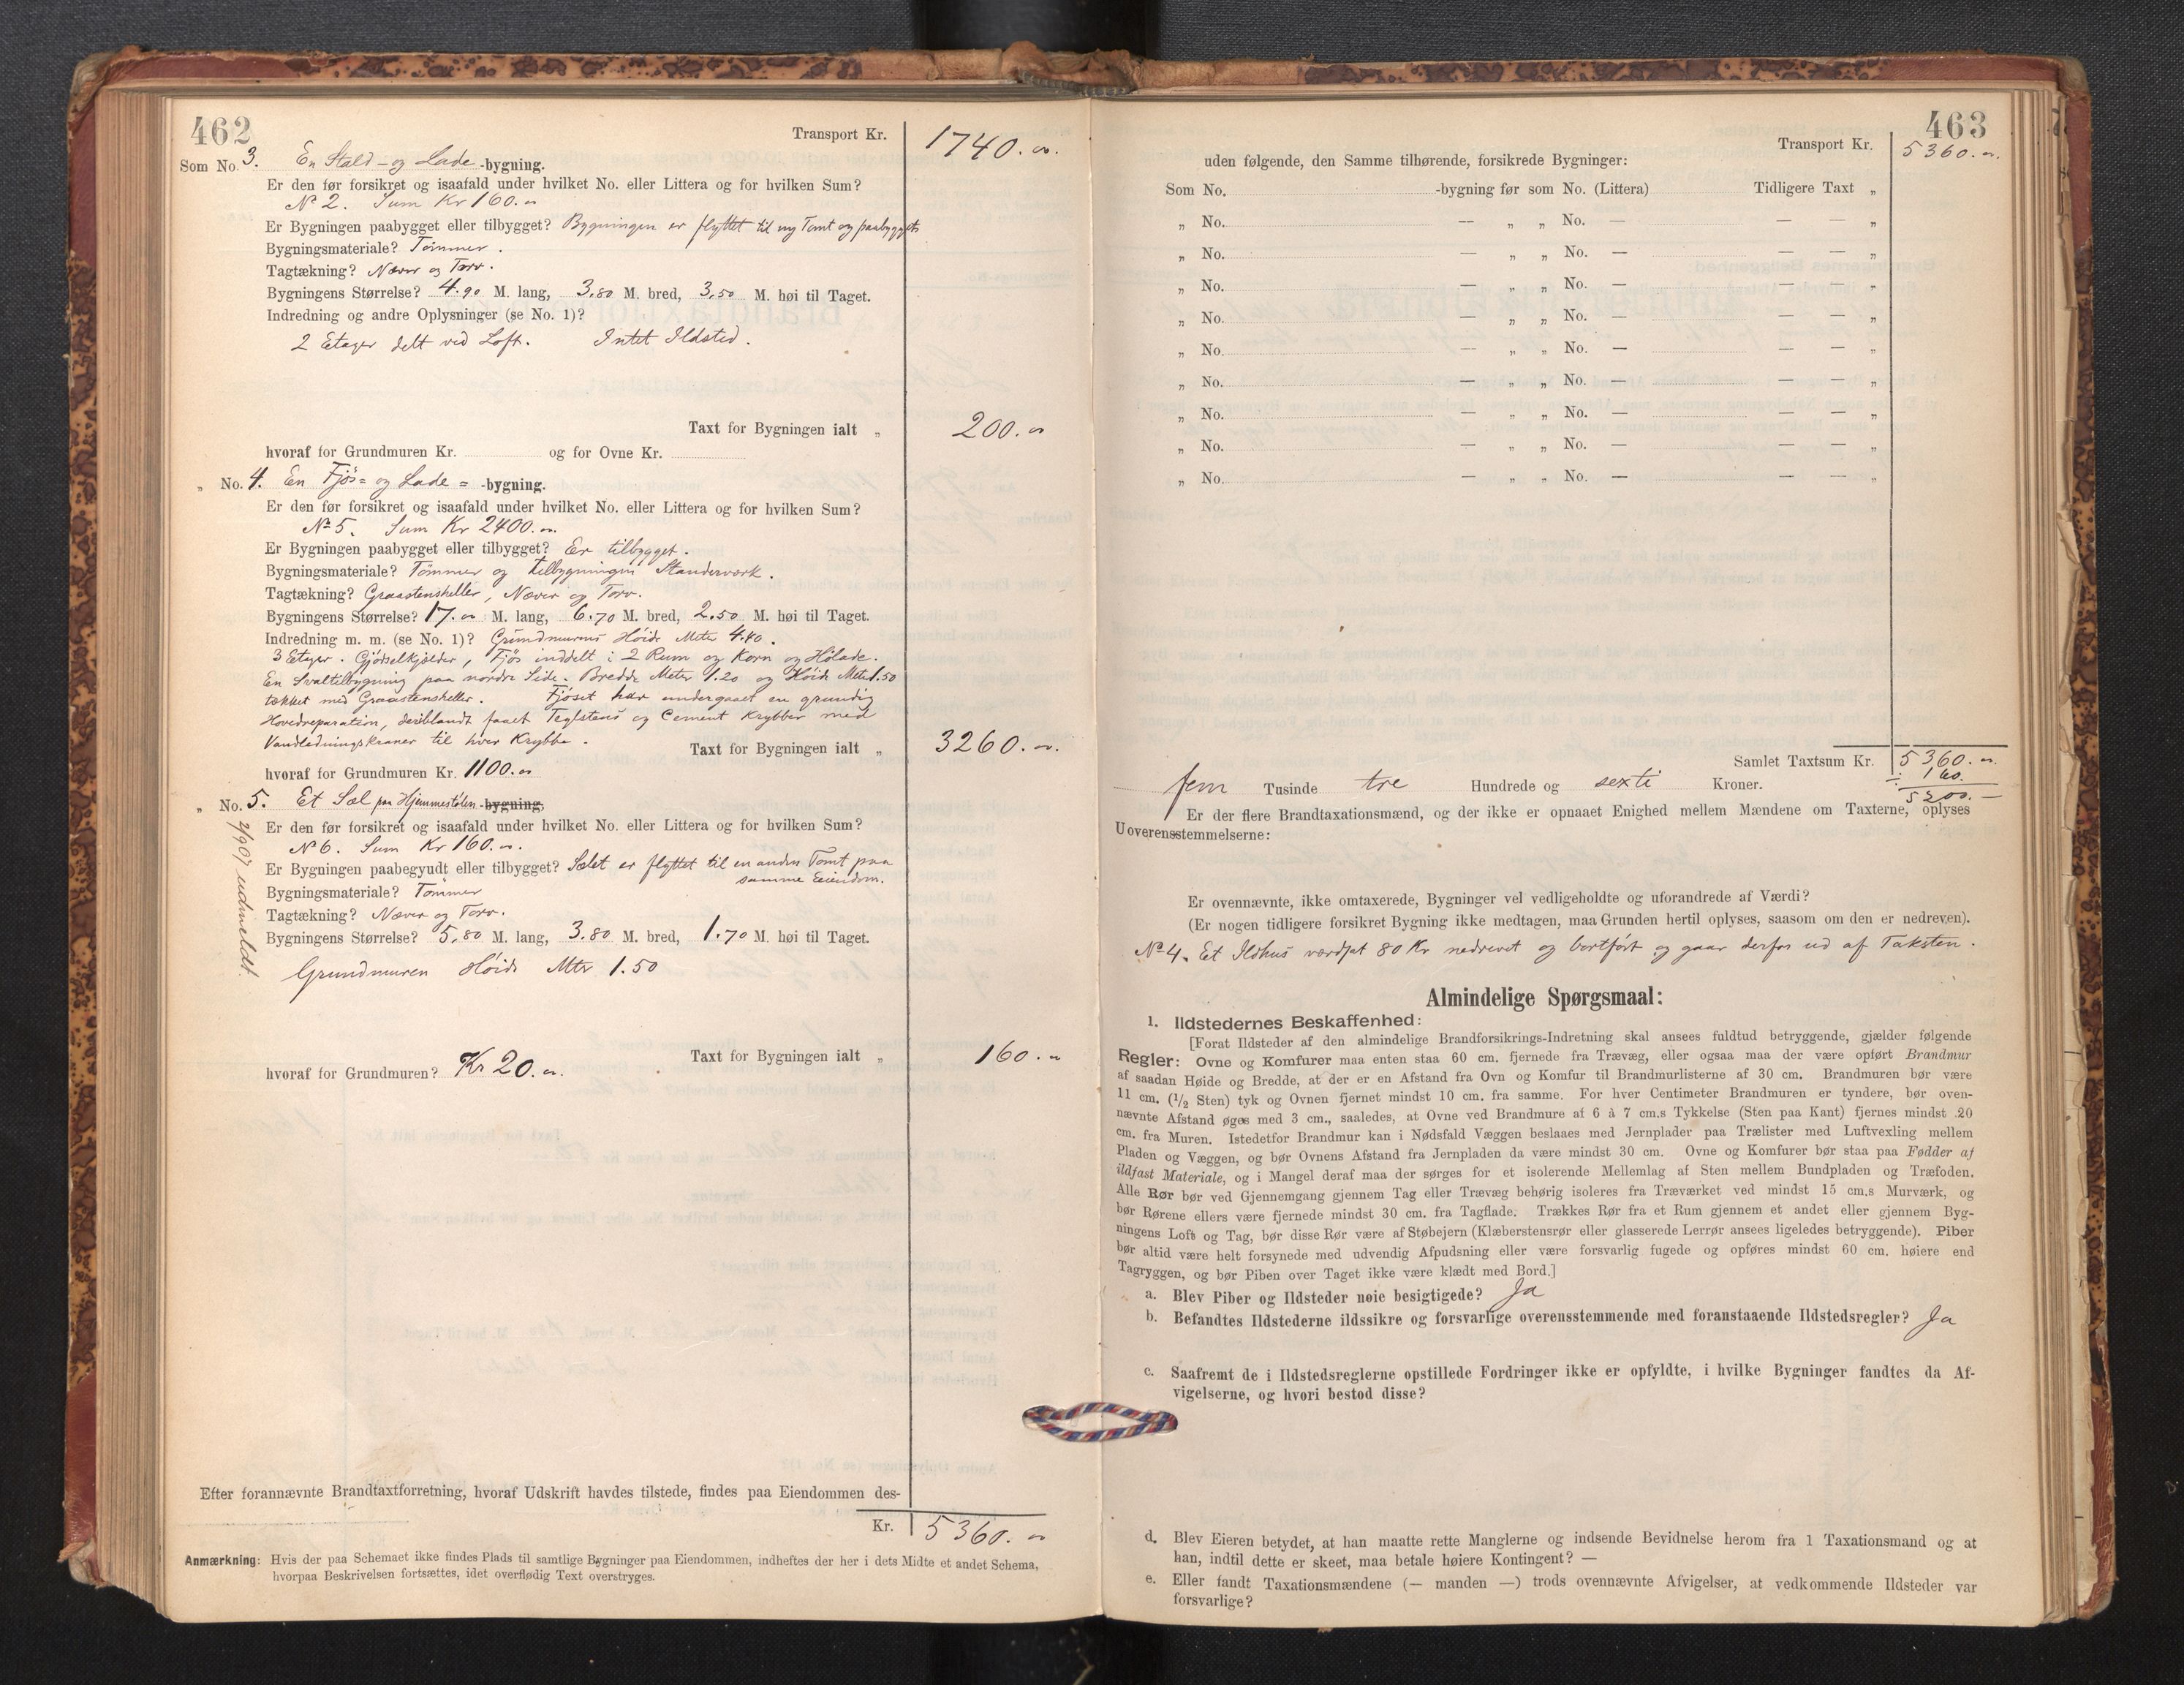 462
Transport Kr. 1740.00
Som No. 3. En Stald- og Lade -bygning.
Er den før forsikret og isaafald under hvilket No. eller Littera og for hvilken Sum?
No 2. Sum Kr 160.00
Er Bygningen paabygget eller tilbygget? Bygningen er flyttet til ny Tomt og paabygget
Bygningsmateriale? Tømmer.
Tagtækning? Næver og Torv.
Bygningens Størrelse? 4.90 M. lang, 3,80 M. bred, 3,50 M. høi til Taget.
Indredning og andre Oplysninger (se No. 1)?
2 Etager delt ved Loft. Intet Ildsted.
Taxt for Bygningen ialt „ 200.00
hvoraf for Grundmuren Kr. og for Ovne Kr.
„ No. 4. En Fjøs= og Lade = -bygning.
Er den før forsikret og isaafald under hvilket No. eller Littera og for hvilken Sum?
No 5. Sum Kr 2400.00
Er Bygningen paabygget eller tilbygget? Er tilbygget.
Bygningsmateriale? Tømmer og tilbygningen Standerværk.
Tagtækning? Graastensheller, Næver og Torv.
Bygningens Størrelse? 17.00 M. lang, 6.70 M. bred, 2.50 M. høi til Taget.
Indredning m. m. (se No. 1)? Grundmurens Høide Meter 4.40.
3 Etager. Gjødselkjælder, Fjøs inddelt i 2 Rum og Korn og Hølade.
En Svaltilbygning paa nordre Side. Bredde Meter 1.20 og Høide Meter 1.50
tækket med Graastensheller. Fjøset har undergaaet en grundig
Hovedreparation, deriblandt faaet Teglstens og Cement Krybber med
Vandledningskraner til hver Krybbe.
Taxt for Bygningen ialt „ 3260.00
hvoraf for Grundmuren Kr. 1100.00
„ No. 5. Et Sæl paa Hjemmestølen -bygning.
Er den før forsikret og isaafald under hvilket No. eller Littera og for hvilken Sum?
No 6. Sum Kr 160.00.
Er Bygningen paabegyudt eller tilbygget? Sælet er flyttet til en anden Tomt paa
samme Eiendom.
Bygningsmateriale? Tømmer
Tagtækning? Næver og Torv.
Bygningens Størrelse? 5,80 M. lang, 3.80 M. bred, 1.70 M. høi til Taget.
Grundmuren Høide Mtr 1.50
udmeldt.
Taxt for Bygningen ialt „ 160.00
hvoraf for Grundmuren? Kr 20.00.
Efter forannævnte Brandtaxtforretning, hvoraf Udskrift havdes tilstede, findes paa Eiendommen des-
Kr. 5360.00
Anmærkning: Hvis der paa Schemaet ikke findes Plads til samtlige Bygninger paa Eiendommen, indheftes der her i dets Midte et andet Schema,
hvorpaa Beskrivelsen fortsættes, idet overflødig Text overstryges.
463
Transport Kr. 5360.00
uden følgende, den Samme tilhørende, forsikrede Bygninger:
Som No. -bygning før som No. (Littera) Tidligere Taxt „
„ No. — „ „ No. — — — „
„ No. — „ „ No. — — — „
„ No. — „ „ No. — — — „
„ No. — „ „ No. — — — „
„ No. — „ „ No. — — — „
„ No. — „ „ No. — — — „
„ No. — „ „ No. — — — „
„ No. — „ „ No. — — — „
„ No. — „ „ No. — — — „
Samlet Taxtsum Kr. 5360.00
÷ 160.
fem Tusinde tre Hundrede og sexti Kroner.
5200.—
Er der flere Brandtaxationsmænd, og der ikke er opnaaet Enighed mellem Mændene om Taxterne, oplyses
Uoverensstemmelserne:
Er ovennævnte, ikke omtaxerede, Bygninger vel vedligeholdte og uforandrede af Værdi?
(Er nogen tidligere forsikret Bygning ikke medtagen, maa Grunden hertil oplyses, saasom om den er nedreven).
No 4. Et Ildhus værdsat 80 Kr nedrevet og bortført og gaar derfor ud af Taksten.
Almindelige Spørgsmaal:
1. Ildstedernes Beskaffenhed:
[Forat Ildsteder af den almindelige Brandforsikrings-Indretning skal ansees fuldtud betryggende, gjælder følgende
Regler: Ovne og Komfurer maa enten staa 60 cm. fjernede fra Trævæg, eller ogsaa maa der være opført Brandmur
af saadan Høide og Bredde, at der er en Afstand fra Ovn og Komfur til Brandmurlisterne af 30 cm. Brandmuren bør være
11 cm. (1/2 Sten) tyk og Ovnen fjernet mindst 10 cm. fra samme. For hver Centimeter Brandmuren er tyndere, bør oven-
nævnte Afstand øges med 3 cm., saaledes, at Ovne ved Brandmure af 6 à 7 cm.s Tykkelse (Sten paa Kant) fjernes mindst 20
cm. fra Muren. Istedetfor Brandmur kan i Nødsfald Væggen beslaaes med Jernplader paa Trælister med Luftvexling mellem
Pladen og Væggen, og bør Ovnens Afstand fra Jernpladen da være mindst 30 cm. Ovne og Komfurer bør staa paa Fødder af
ildfast Materiale, og i Mangel deraf maa der sørges for et isolerende Mellemlag af Sten mellem Bundpladen og Træfoden.
Alle Rør bør ved Gjennemgang gjennem Tag eller Trævæg behørig isoleres fra Træværket ved mindst 15 cm.s Murværk, og
bør Rørene ellers være fjernede mindst 30 cm. fra Tagflade. Trækkes Rør fra et Rum gjennem et andet eller gjennem Byg-
ningens Loft og Tag, bør disse Rør være af Støbejern (Klæberstensrør eller glasserede Lerrør ansees ligeledes betryggende). Piber
bør altid være helt forsynede med udvendig Afpudsning eller være forsvarlig fugede og opføres mindst 60 cm. høiere end
Tagryggen, og bør Piben over Taget ikke være klædt med Bord.]
a. Blev Piber og Ildsteder nøie besigtigede? Ja
b. Befandtes Ildstederne ildssikre og forsvarlige overensstemmende med foranstaaende Ildstedsregler? Ja
c. Saafremt de i Ildstedsreglerne opstillede Fordringer ikke er opfyldte, i hvilke Bygninger fandtes da Af-
vigelserne, og hvori bestod disse?
d. Blev Eieren betydet, at han maatte rette Manglerne og indsende Bevidnelse herom fra 1 Taxationsmand og at
han, indtil dette er skeet, maa betale høiere Kontingent? —
e. Eller fandt Taxationsmændene (— manden —) trods ovennævnte Afvigelser, at vedkommende Ildsteder var
forsvarlige?